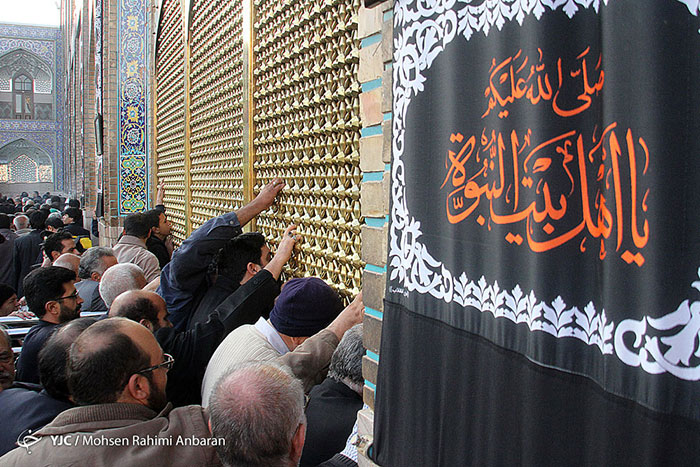 صلی الله علیکم
یا اهل بیت النبوة
YJC / Mohsen Rahimi Anbaran